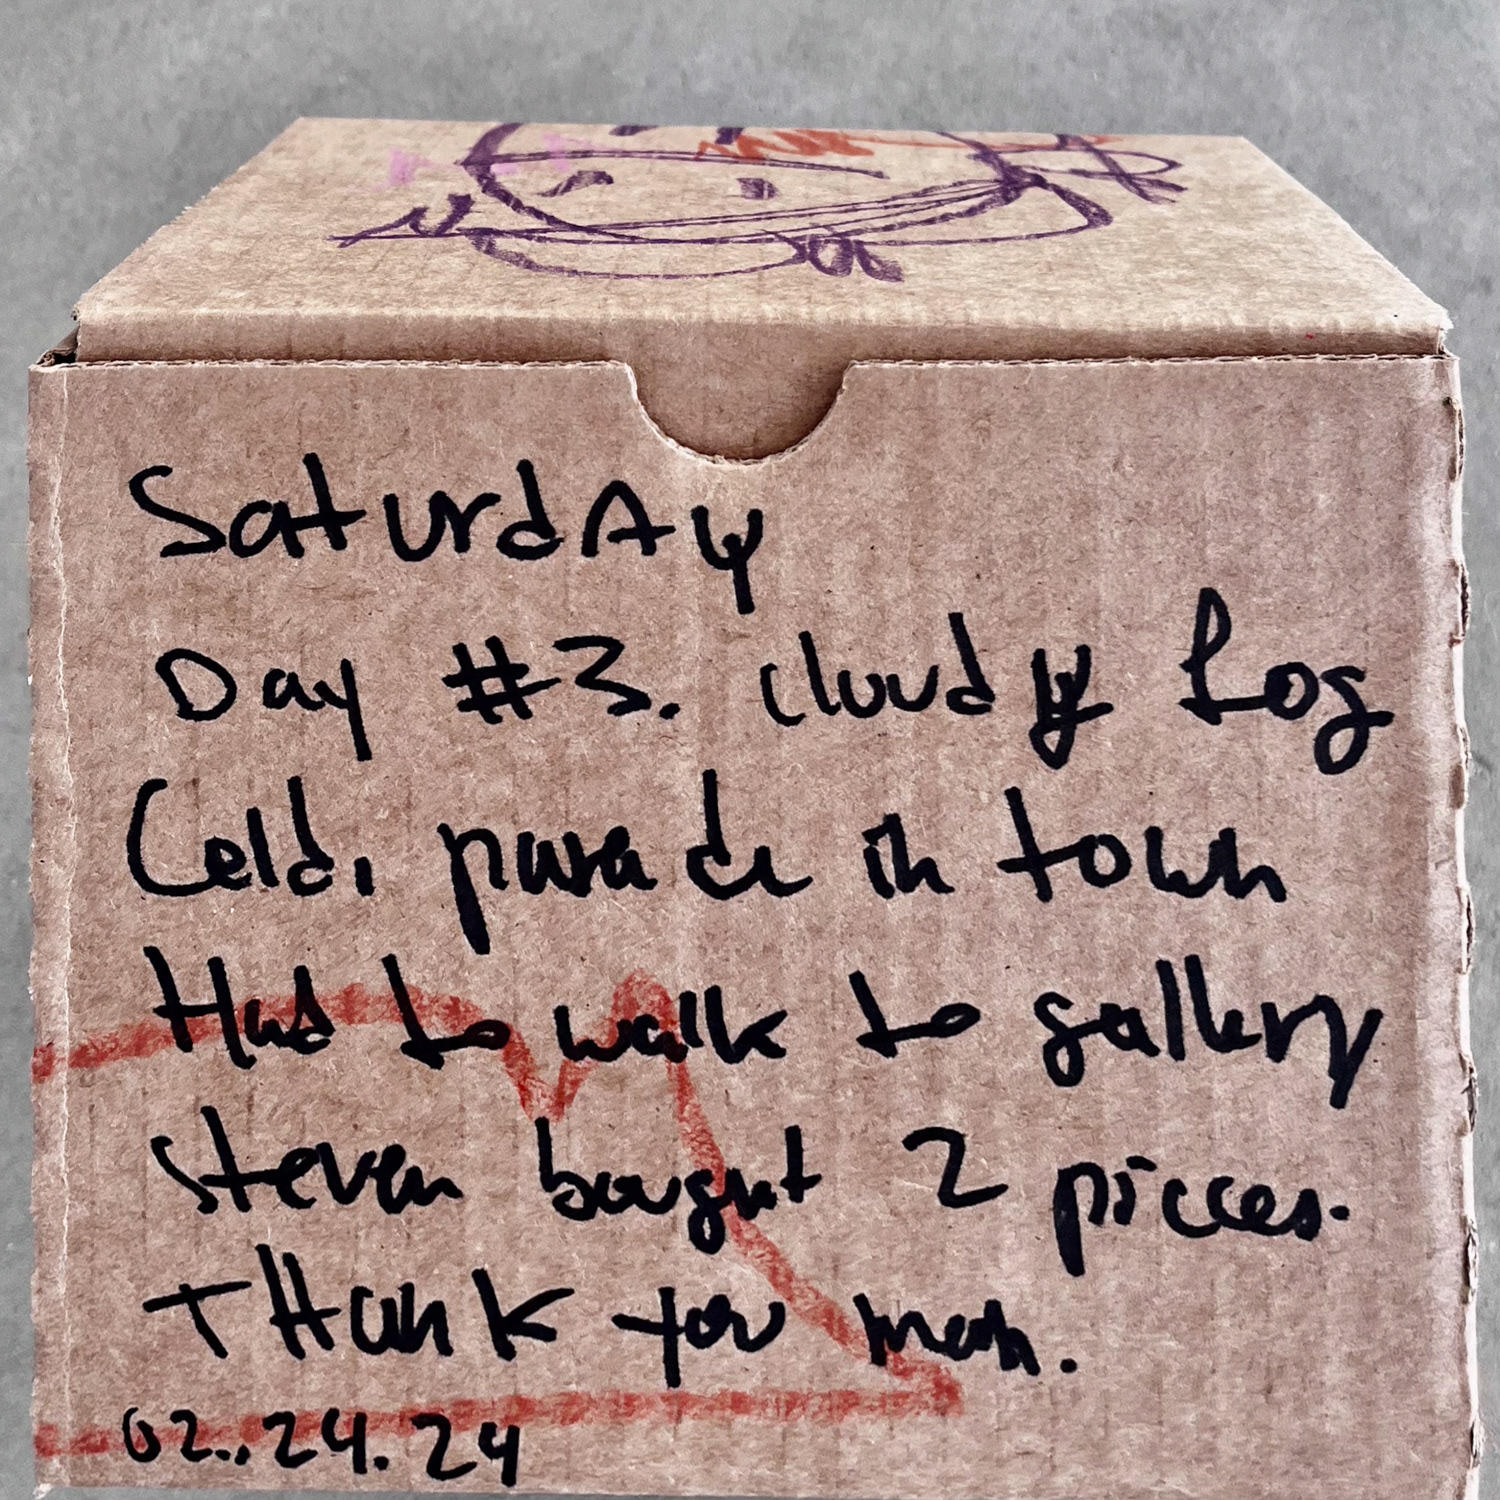 Saturday
Day #3. cloudy fog
Cold, parade in town
Had to walk to gallery
Steven bought 2 pieces.
THank you man.
02.24.24